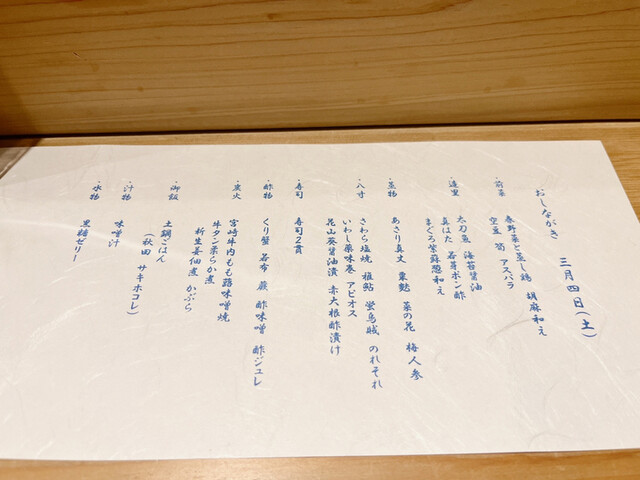 おしながき 三月四日(土)
・前菜 春野菜と蒸し鶏 胡麻和え
空豆 筍 アスパラ
・造里 太刀魚 海苔醤油
真はた 若芽ポン酢
まぐろ紫蘇葱和え
・蒸物 あさり真丈 粟麩 菜の花 梅人参
・八寸 さわら塩焼 稚鮎 蛍烏賊 のれそれ
いわし薬味巻 アピオス
花山葵醤油漬 赤大根酢漬け
・寿司 寿司2貫
・酢物 くり蟹 若布 蕨 酢味噌 酢ジュレ
・炭火 宮崎牛内もも蕗味噌焼
牛タン柔らか煮
新生姜佃煮 かぶら
・御飯 土鍋ごはん
(秋田 サキホコレ)
・汁物 味噌汁
・水物 黒糖ゼリー